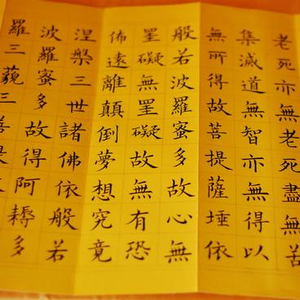 老死亦無老死盡無苦
集滅道無智亦無得以
無所得故菩提薩埵依
般若波羅蜜多故心無
罣礙無罣礙故無有恐
怖遠離顛倒夢想究竟
涅槃三世諸佛依般若
波羅蜜多故得阿耨多
羅三藐三菩提